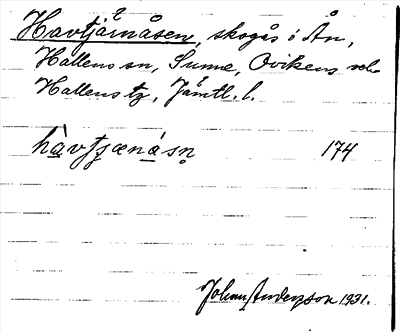 Havtjärnåsen, skogås i Ån,
Hallens sn, Sunne, Ovikens och
Hallens tg, Jämtl. l.
hàvtʃænåsn 174
Johan Anderzson 1931.